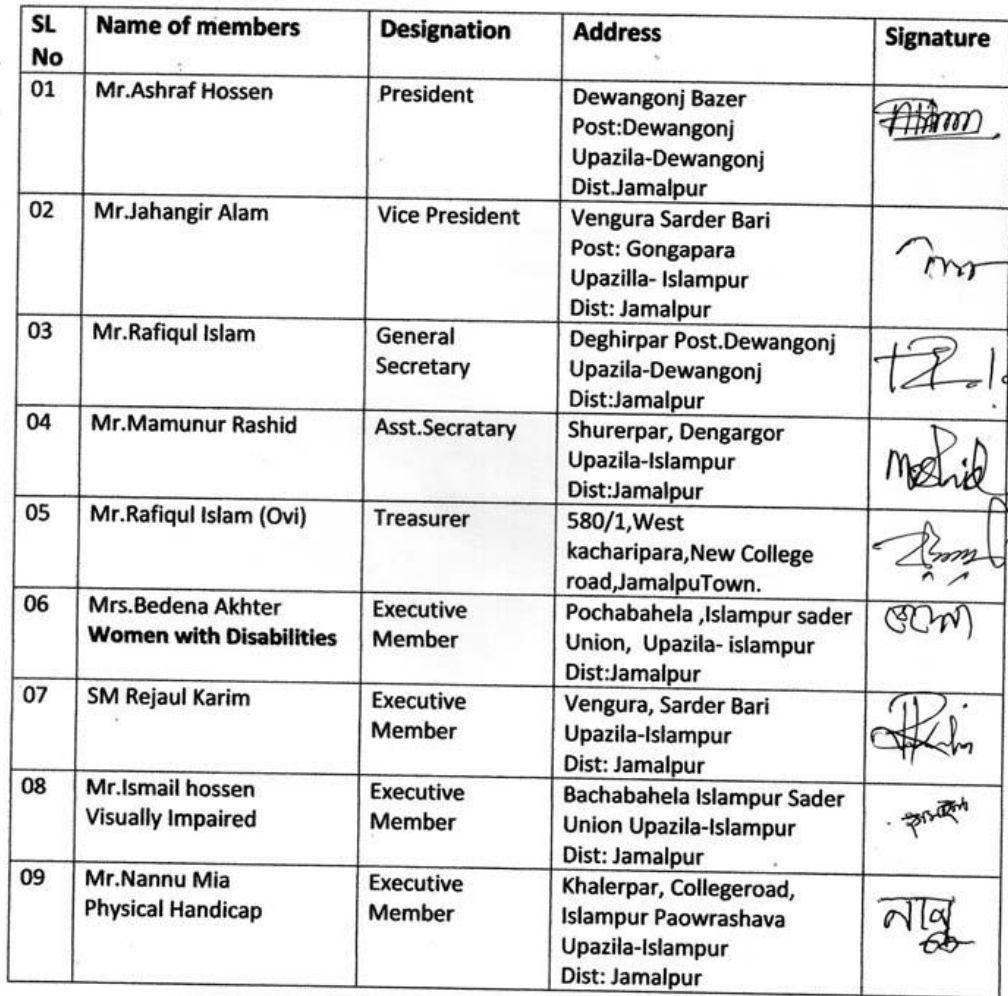 SL No
Name of members
Designation
Address
Signature
01
Mr.Ashraf Hossen
President
Dewangonj Bazer
Post:Dewangonj
Upazila-Dewangonj
Dist.Jamalpur
02
Mr.Jahangir Alam
Vice President
Vengura Sarder Bari
Post: Gongapara
Upazilla- Islampur
Dist: Jamalpur
03
Mr.Rafiqul Islam
General
Secretary
Deghirpar Post.Dewangonj
Upazila-Dewangonj
Dist:Jamalpur
04
Mr.Mamunur Rashid
Asst.Secratary
Shurerpar, Dengargor
Upazila-Islampur
Dist:Jamalpur
05
Mr.Rafiqul Islam (Ovi)
Treasurer
580/1,West
kacharipara,New College
road,JamalpuTown.
06
Mrs.Bedena Akhter
Women with Disabilities
Executive
Member
Pochabahela ,Islampur sader
Union, Upazila- islampur
Dist:Jamalpur
07
SM Rejaul Karim
Executive
Member
Vengura, Sarder Bari
Upazila-Islampur
Dist: Jamalpur
08
Mr.Ismail hossen
Visually Impaired
Executive
Member
Bachabahela Islampur Sader
Union Upazila-Islampur
Dist: Jamalpur
09
Mr.Nannu Mia
Physical Handicap
Executive
Member
Khalerpar, Collegeroad,
Islampur Paowrashava
Upazila-Islampur
Dist: Jamalpur